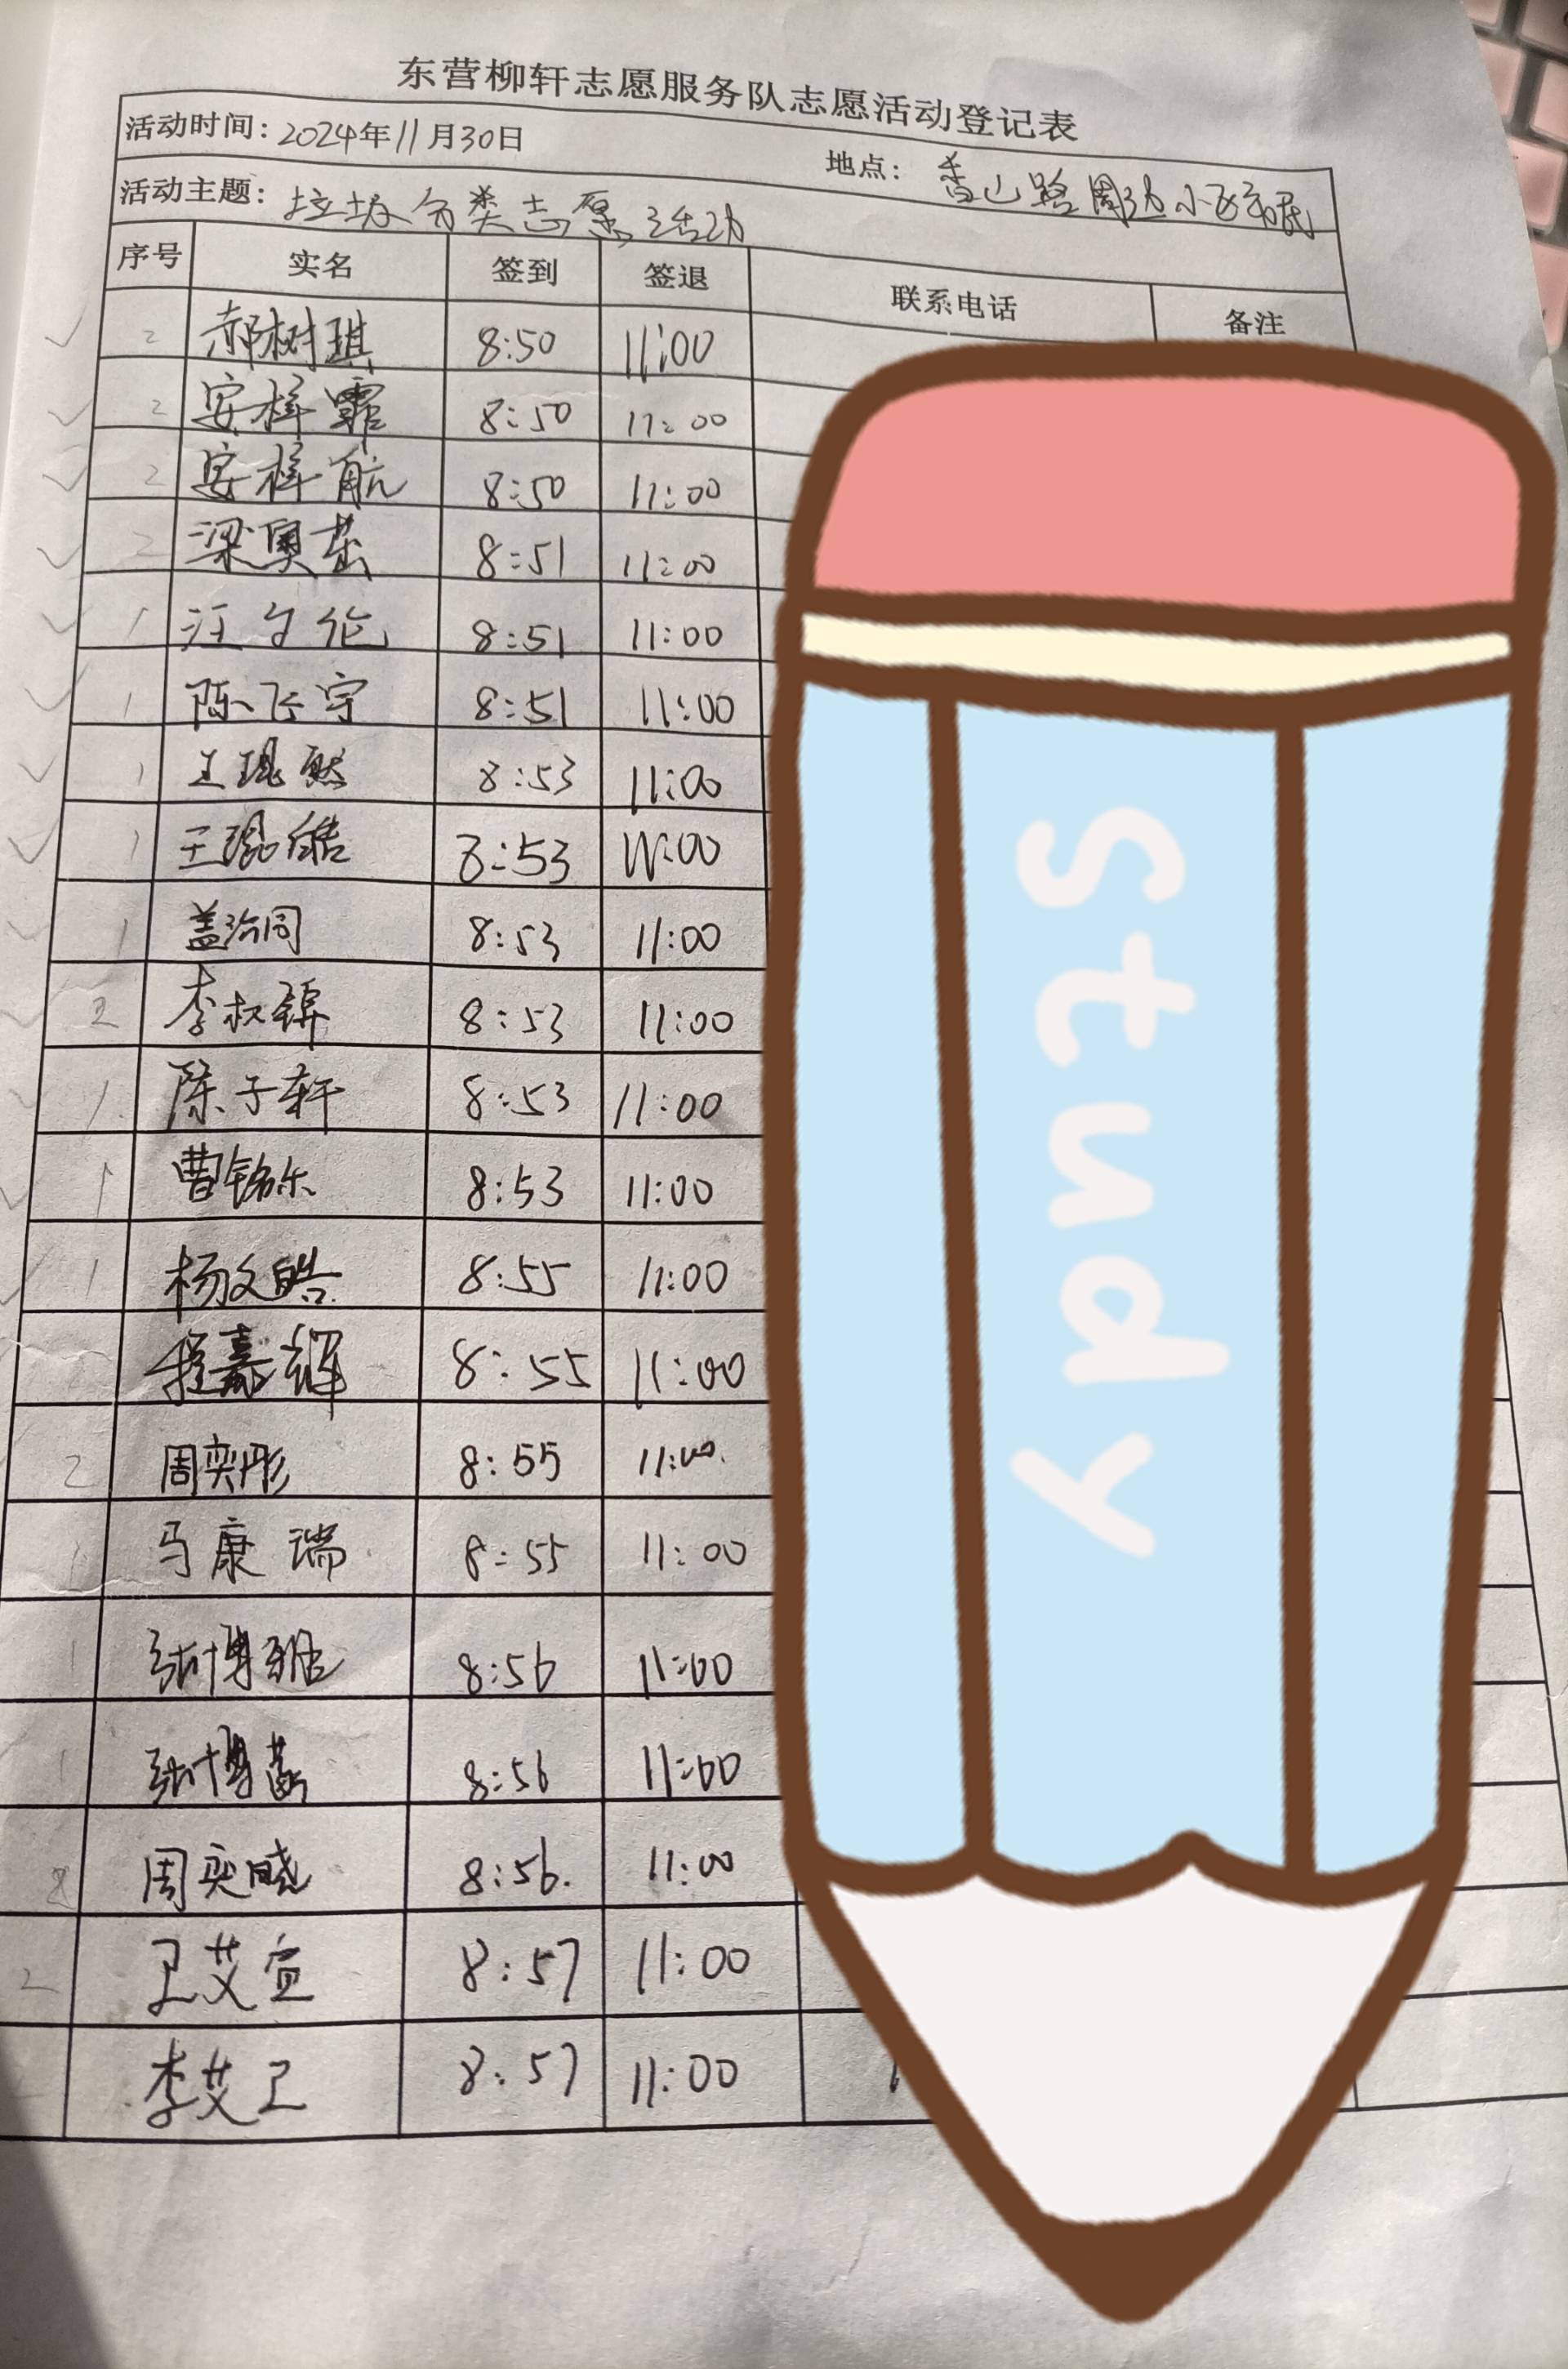 东营柳轩志愿服务队志愿活动登记表
活动时间：2024年11月30日 地点：香山路周边小区
活动主题：垃圾分类志愿活动
序号 实名 签到 签退 联系电话 备注
2 郝树琪 8:50 11:00
2 安梓霏 8:50 11:00
2 安梓航 8:50 11:00
2 梁奥 8:51 11:00
1 汪 8:51 11:00
1 陈飞宇 8:51 11:00
1 王琨然 8:53 11:00
1 王琨皓 8:53 11:00
1 盖 8:53 11:00
2 李 8:53 11:00
1 陈子轩 8:53 11:00
1 曹铭乐 8:53 11:00
1 杨文皓 8:55 11:00
程嘉辉 8:55 11:00
2 周奕彤 8:55 11:00
1 马康瑞 8:55 11:00
1 张博 8:56 11:00
1 张博 8:56 11:00
2 周奕晓 8:56 11:00
2 卫艾宣 8:57 11:00
李艾卫 8:57 11:00
Study